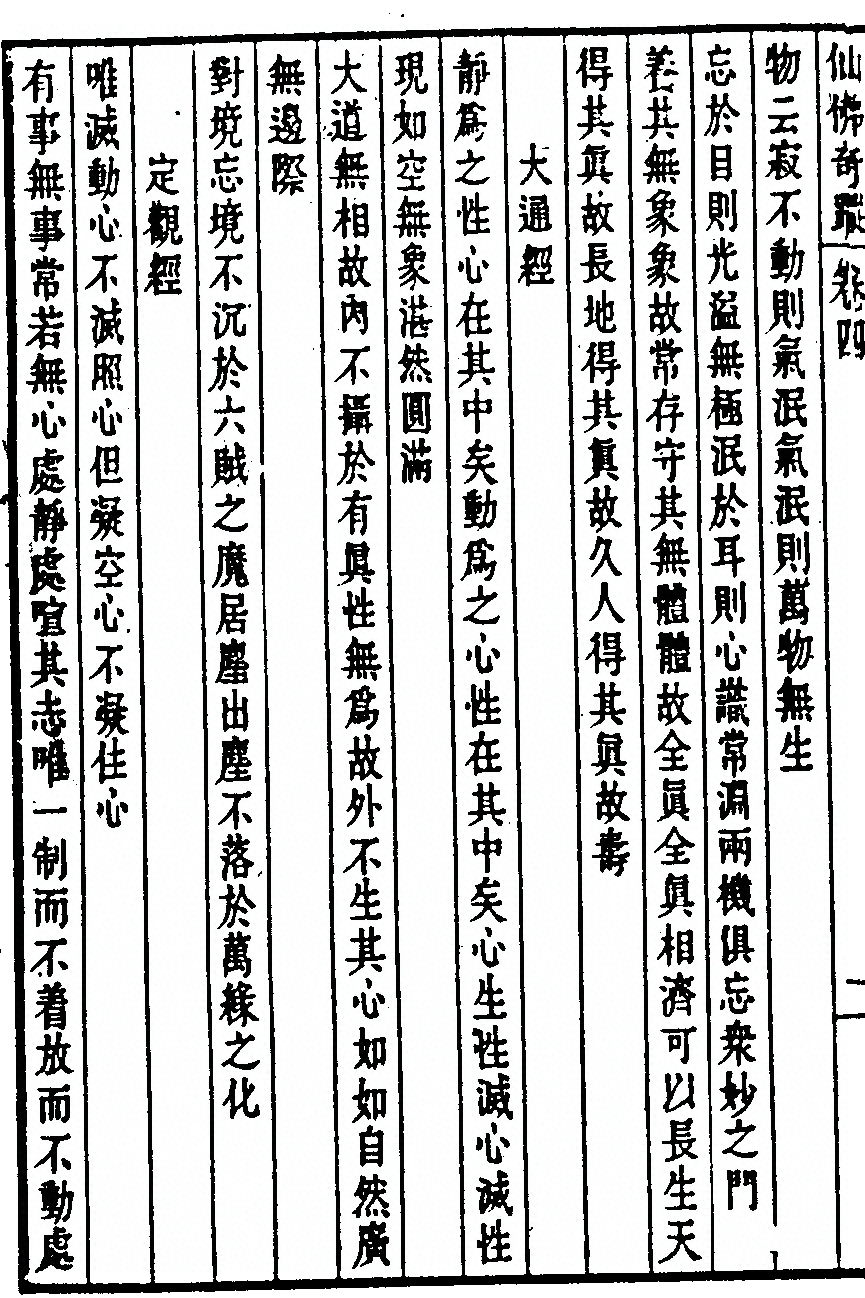 仙佛奇蹤 卷四 一
物云寂不動則氣泯氣泯則萬物無生
忘於目則光溢無極泯於耳則心識常淵兩機俱忘衆妙之門
養其無象象故常存守其無體體故全眞全眞相濟可以長生天
得其眞故長地得其眞故久人得其眞故壽
大通經
靜爲之性心在其中矣動爲之心性在其中矣心生性滅心滅性
現如空無象湛然圓滿
大道無相故內不攝於有眞性無爲故外不生其心如如自然廣
無邊際
對境忘境不沉於六賊之魔居塵出塵不落於萬緣之化
定觀經
唯滅動心不滅照心但凝空心不凝住心
有事無事常若無心處靜處喧其志唯一制而不着放而不動處